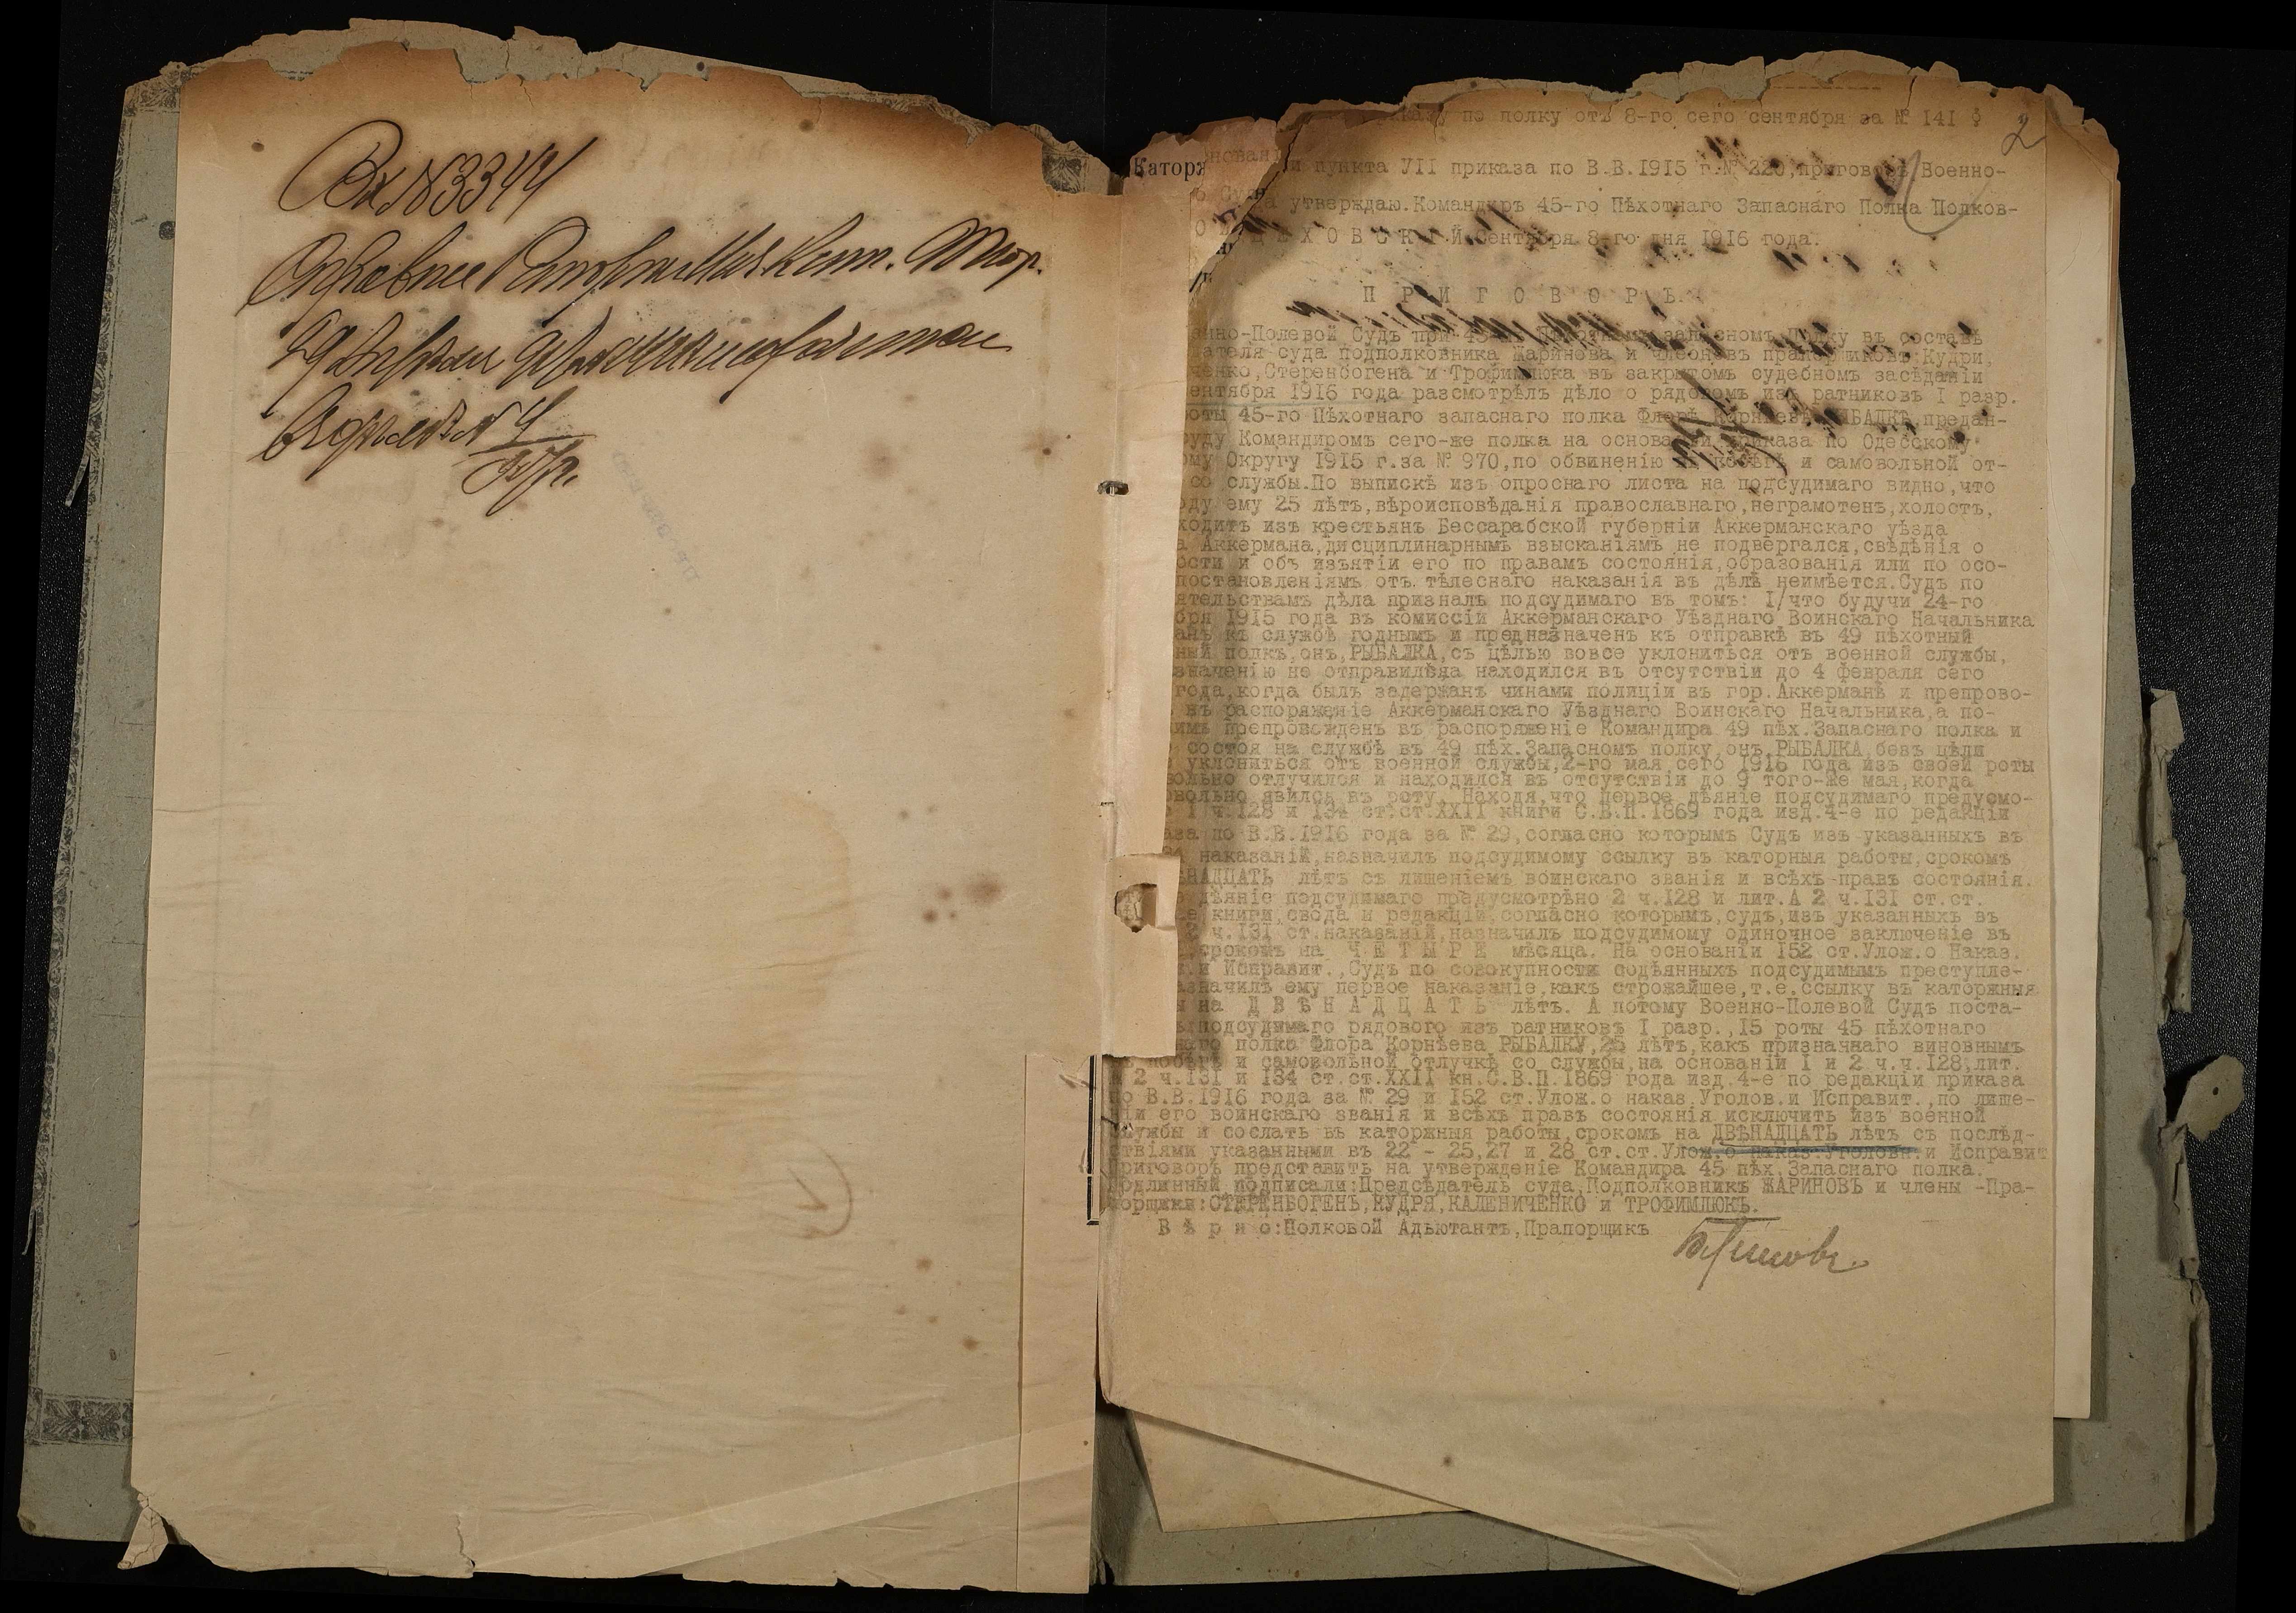 Вх №3344
2
казу по полку отъ 8-го сего сентября за № 141
Каторж
пункта УІІ приказа по В.В.1915 г.№ 220,приговоръ Военно-
Суда утверждаю.Командиръ 45-го Пѣхотнаго Запаснаго Полка Полков-
Х О В С К І Й.Сентября 8-го дня 1916 года.
П Р И Г О В О Р Ъ.
енно-Полевой Судъ при 45 запасномъ Полку въ составѣ
дателя суда подполковника Жаринова и членовъ прапорщиковъ:Кудри,
ченко,Стеренбогена и Трофимлюка въ закрытомъ судебномъ засѣданіи
ентября 1916 года разсмотрѣлъ дѣло о рядовомъ изъ ратниковъ І разр.
роты 45-го Пѣхотнаго запаснаго полка Флорѣ Корнѣевѣ РЫБАЛКѢ,предан-
суду Командиромъ сего-же полка на основаніи приказа по Одесскому
ому Округу 1915 г.за № 970,по обвиненію въ побѣгѣ и самовольной от-
со службы.По выпискѣ изъ опроснаго листа на подсудимаго видно,что
оду ему 25 лѣтъ,вѣроисповѣданія православнаго,неграмотенъ,холостъ,
ходитъ изъ крестьянъ Бессарабской губерніи Аккерманскаго уѣзда
а Аккермана,дисциплинарнымъ взысканіямъ не подвергался,свѣдѣнія о
ости и объ изъятіи его по правамъ состоянія,образованія или по осо-
постановленіямъ отъ тѣлеснаго наказанія въ дѣлѣ неимѣется.Судъ по
ятельствамъ дѣла призналъ подсудимаго въ томъ: І/что будучи 24-го
бря 1915 года въ комиссіи Аккерманскаго Уѣзднаго Воинскаго Начальника
анъ къ службѣ годнымъ и предназначенъ къ отправкѣ въ 49 пѣхотный
ный полкъ,онъ,РЫБАЛКА,съ цѣлью вовсе уклониться отъ военной службы,
значенію не отправился,а находился въ отсутствіи до 4 февраля сего
года,когда былъ задержанъ чинами полиціи въ гор.Аккерманѣ и препрово-
въ распоряженіе Аккерманскаго Уѣзднаго Воинскаго Начальника,а по-
имъ препровожденъ въ распоряженіе Командира 49 пѣх.Запаснаго полка и
состоя на службѣ въ 49 пѣх.Запасномъ полку,онъ,РЫБАЛКА,безъ цѣли
уклониться отъ военной службы,2-го мая сего 1916 года изъ своей роты
вольно отлучился и находился въ отсутствіи до 9 того-же мая,когда
овольно явился въ роту. Находя,что первое дѣяніе подсудимаго предусмо-
І ч.128 и 134 ст.ст.ХХІІ книги С.В.П.1869 года изд.4-е по редакціи
аза по В.В.1916 года за № 29,согласно которымъ Судъ изъ указанныхъ въ
наказаній,назначилъ подсудимому ссылку въ каторныя работы,срокомъ
ѢНАДЦАТЬ лѣтъ съ лишеніемъ воинскаго званія и всѣхъ правъ состоянія.
дѣяніе подсудимаго предусмотрѣно 2 ч.128 и лит.А 2 ч.131 ст.ст.
книги,свода и редакціи,согласно которымъ,судъ,изъ указанныхъ въ
ч.131 ст.наказаній,назначилъ подсудимому одиночное заключеніе въ
срокомъ на Ч Е Т Ы Р Е мѣсяца. На основаніи 152 ст.Улож.о Наказ.
и Исправит.,Судъ по совокупности содѣянныхъ подсудимымъ преступле-
азначилъ ему первое наказаніе,какъ строжайшее,т.е.ссылку въ каторжныя
на Д В Ѣ Н А Д Ц А Т Ь лѣтъ. А потому Военно-Полевой Судъ поста-
подсудимаго рядового изъ ратниковъ І разр.,15 роты 45 пѣхотнаго
наго полка Флора Корнѣева РЫБАЛКУ,25 лѣтъ,какъ признанаго виновнымъ
въ побѣгѣ и самовольной отлучкѣ со службы,на основаніи І и 2 ч.ч.128,лит.
2 ч.131 и 134 ст.ст.ХХІІ кн.С.В.П.1869 года изд.4-е по редакціи приказа
по В.В.1916 года за № 29 и 152 ст.Улож.о наказ.Уголов.и Исправит.,по лише-
ніи его воинскаго званія и всѣхъ правъ состоянія исключить изъ военной
службы и сослать въ каторжныя работы,срокомъ на ДВѢНАДЦАТЬ лѣтъ съ послѣд-
ствіями указанными въ 22 - 25,27 и 28 ст.ст.Улож.о наказ.Уголовн.и Исправит
Приговоръ представить на утвержденіе Командира 45 пѣх.Запаснаго полка.
Подлинный подписали:Предсѣдатель суда,Подполковникъ ЖАРИНОВЪ и члены -Пра-
порщики:СТЕРЕНБОГЕНЪ,КУДРЯ,КАЛЕНИЧЕНКО и ТРОФИМЛЮКЪ.
В ѣ р н о:Полковой Адъютантъ,Прапорщикъ